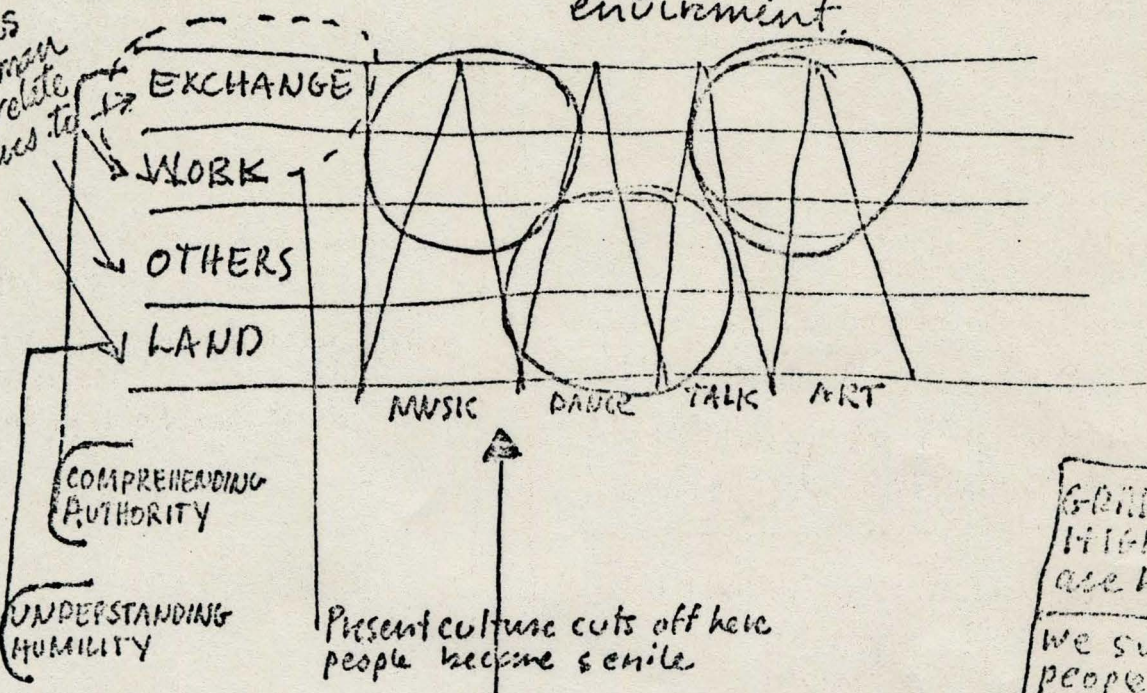 envirment
EXCHANGE
WORK
OTHERS
LAND
MUSIC DANCE TALK ART
COMPREHENDING
AUTHORITY
UNDERSTANDING
HUMILITY
Present culture cuts off here
people become senile
are
we
people